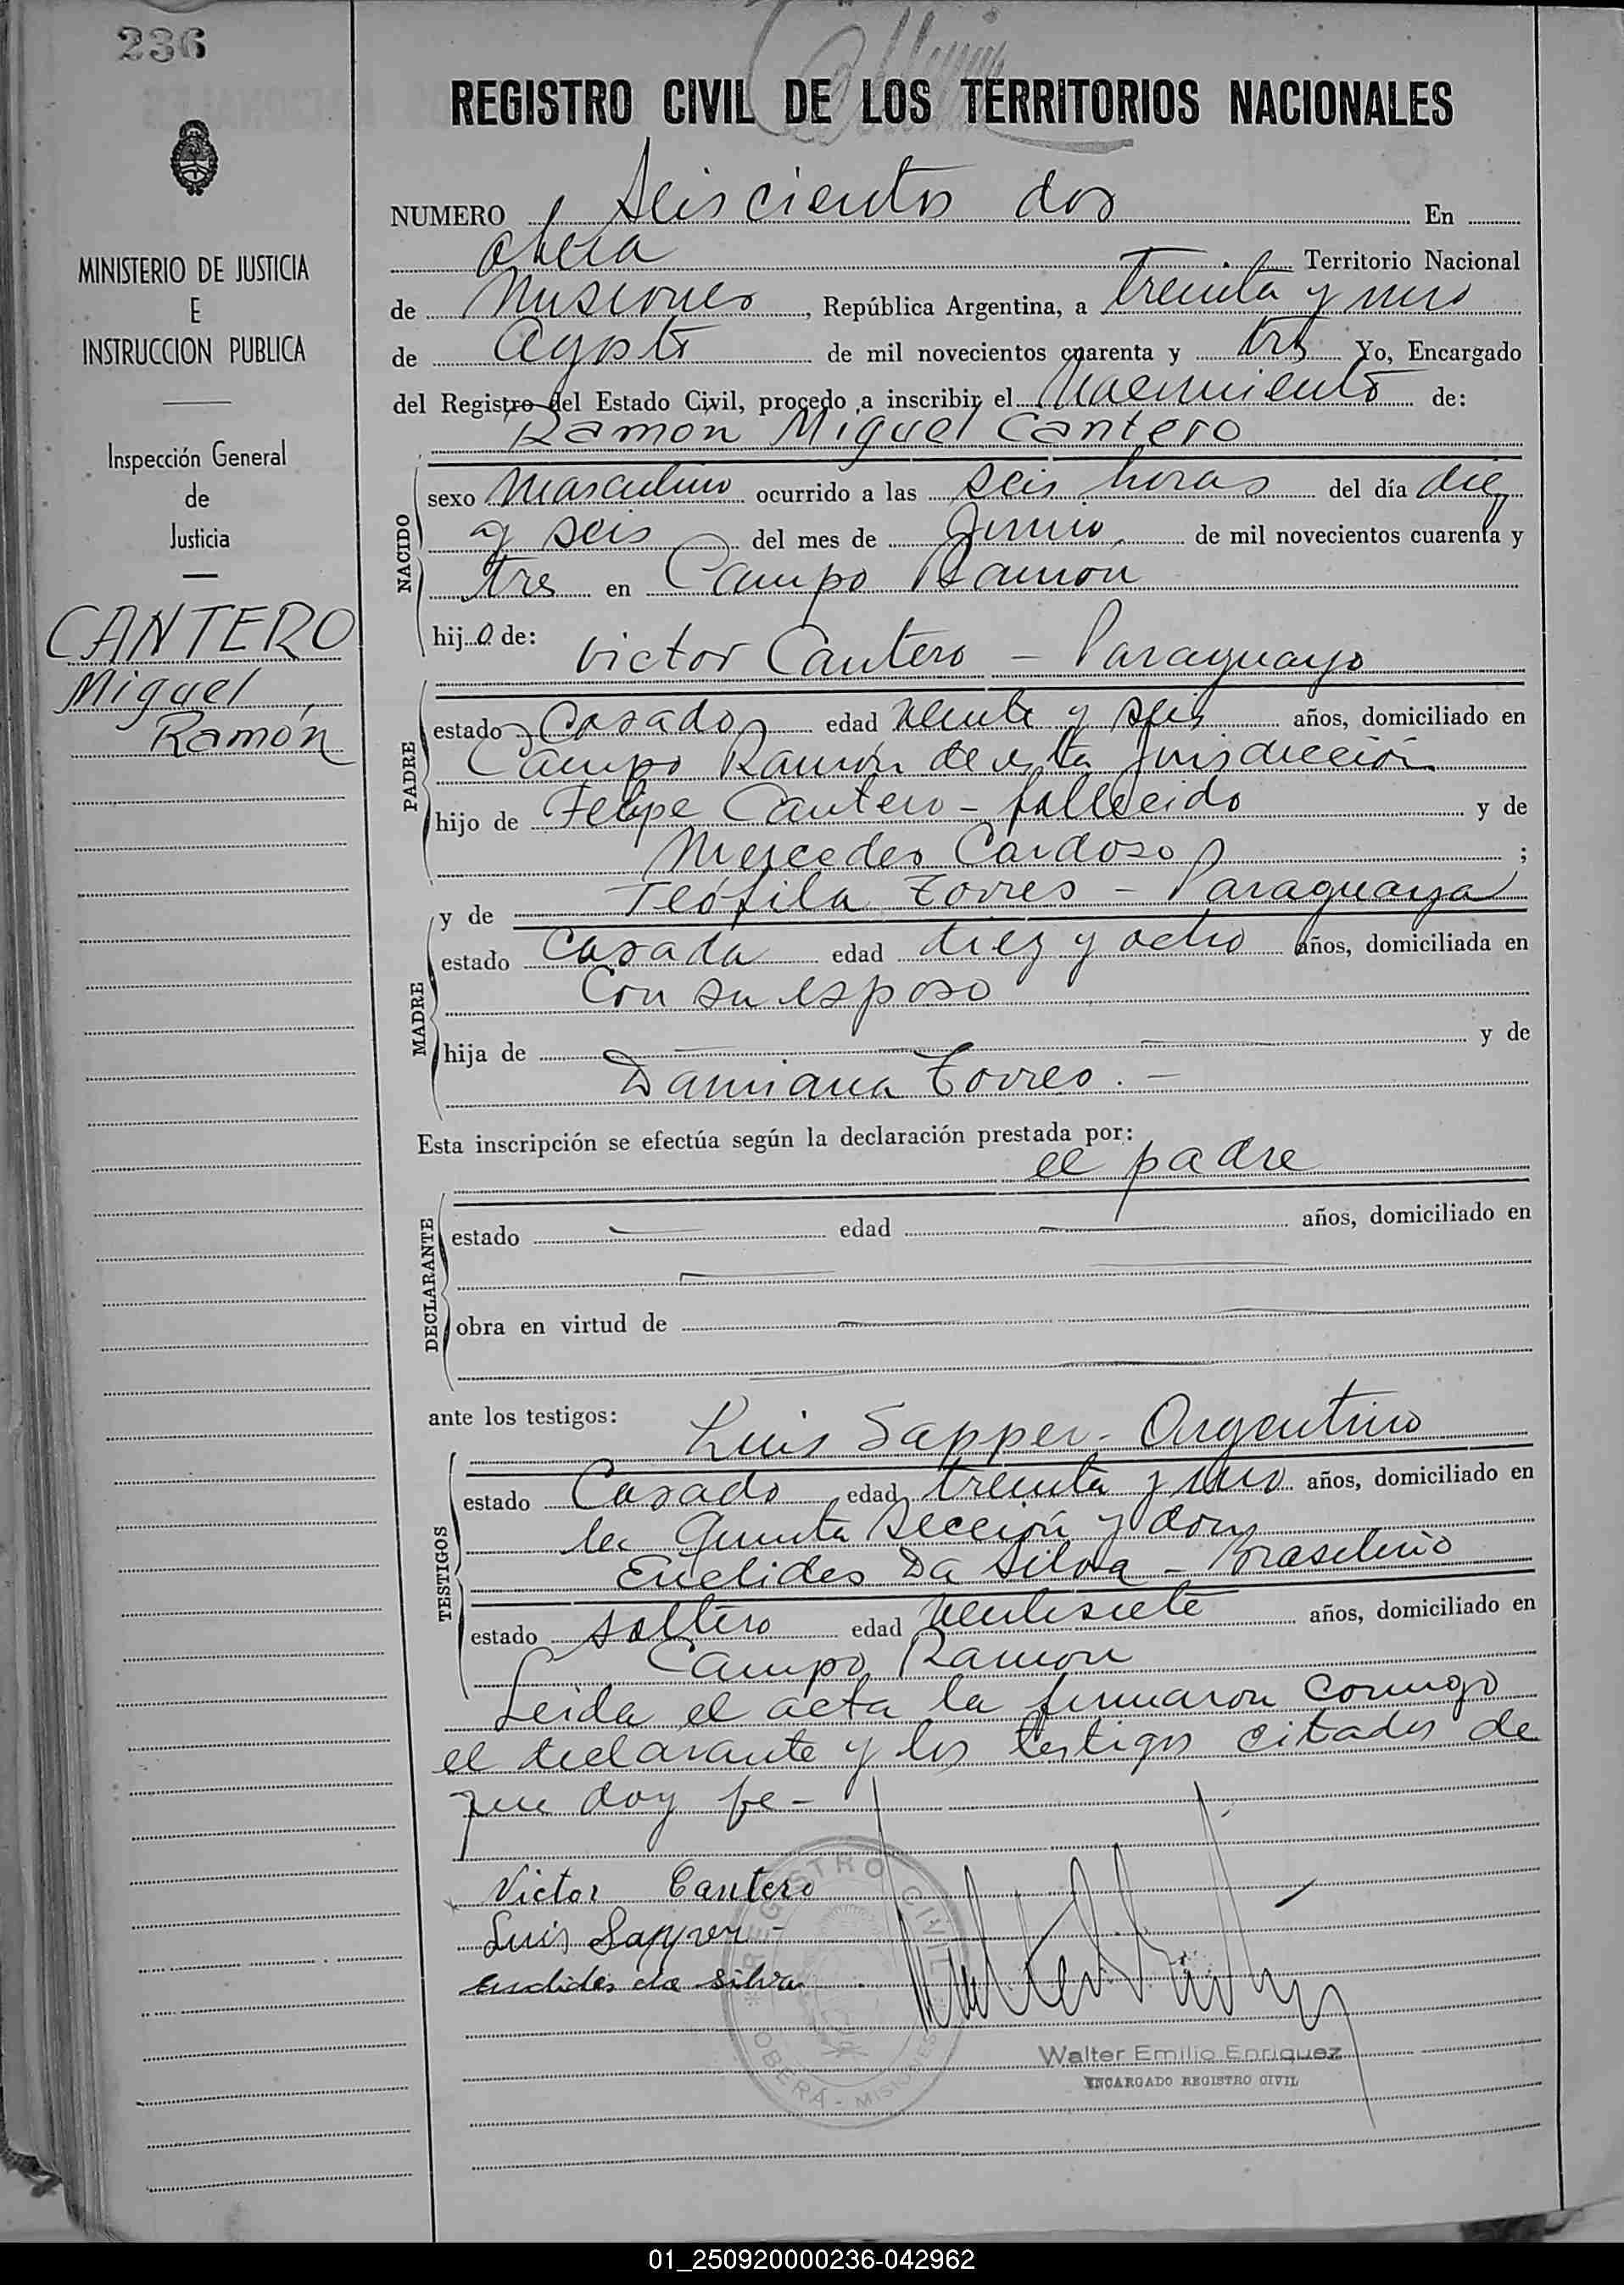 236
REGISTRO CIVIL DE LOS TERRITORIOS NACIONALES
MINISTERIO DE JUSTICIA
E
INSTRUCCION PUBLICA
Inspección General
de
Justicia
CANTERO
Miguel
Ramón
NUMERO Seiscientos dos En
Oberá Territorio Nacional
de Misiones, República Argentina, a treinta y uno
de Agosto de mil novecientos cuarenta y tres Yo, Encargado
del Registro del Estado Civil, procedo a inscribir el Nacimiento de:
Ramón Miguel Cantero
NACIDO
sexo Masculino ocurrido a las seis horas del día diez
y seis del mes de Junio de mil novecientos cuarenta y
tres en Campo Ramon
hijo de: Victor Cantero - Paraguayo
PADRE
estado Casado edad veinte y seis años, domiciliado en
Campo Ramón de esta jurisdicción
hijo de Felipe Cantero - fallecido y de
Mercedes Cardoso ;
y de Teófila Torres - Paraguaya
MADRE
estado Casada edad diez y ocho años, domiciliada en
Con su esposo
hija de y de
Damiana Torres. -
Esta inscripción se efectúa según la declaración prestada por:
el padre
DECLARANTE
estado edad años, domiciliado en
obra en virtud de
ante los testigos: Luis Sapper - Argentino
TESTIGOS
estado Casado edad treinta y uno años, domiciliado en
la Quinta Sección y don
Euclides Da Silva - Brasilero
estado soltero edad veintisiete años, domiciliado en
Campo Ramon
Leida el acta la firmaron conmigo
el declarante y los testigos citados de
que doy fe -
Victor Cantero
Luis Sapper -
euclides da silva
REGISTRO CIVIL
OBERÁ - MISIONES
Walter Emilio Enriquez
ENCARGADO REGISTRO CIVIL
01_250920000236-042962